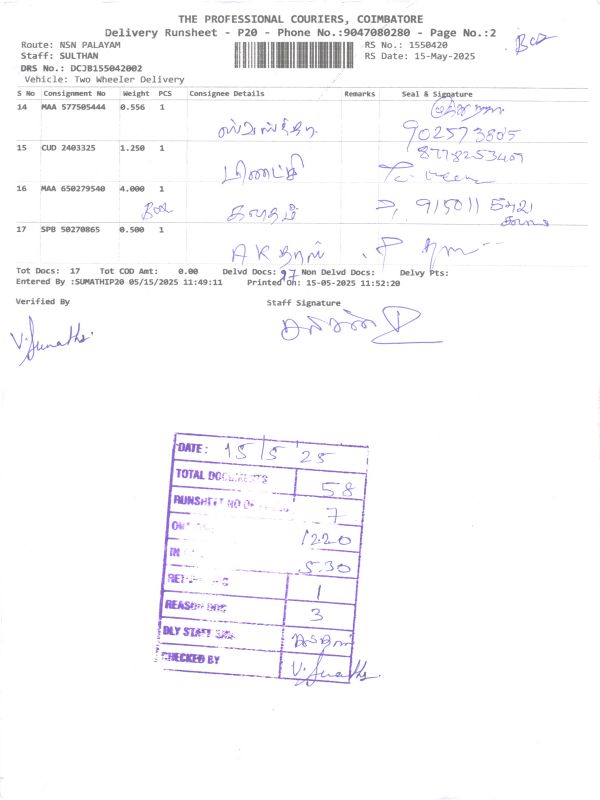 THE PROFESSIONAL COURIERS, COIMBATORE
Delivery Runsheet - P20 - Phone No.:9047080280 - Page No.:2
Route: NSN PALAYAM RS No.: 1550420
Staff: SULTHAN RS Date: 15-May-2025
DRS No.: DCJB155042002
Vehicle: Two Wheeler Delivery
S No Consignment No Weight PCS Consignee Details Remarks Seal & Signature
14 MAA 577505444 0.556 1
902573805
15 CUD 2403325 1.250 1
8778253407
16 MAA 650279540 4.000 1
Box 9150115421
17 SPB 50270865 0.500 1
AK தாஸ்
Tot Docs: 17 Tot COD Amt: 0.00 Delvd Docs: 17 Non Delvd Docs: Delvy Pts:
Entered By :SUMATHIP20 05/15/2025 11:49:11 Printed On: 15-05-2025 11:52:20
Verified By Staff Signature
V. Sumathi
DATE: 15/5 25
TOTAL DOCUMENTS 58
RUNSHEET NO OF 7
1220
IN 5.30
1
REASON DOC 3
DLY STAFF SIGN
CHECKED BY V. Sumathi